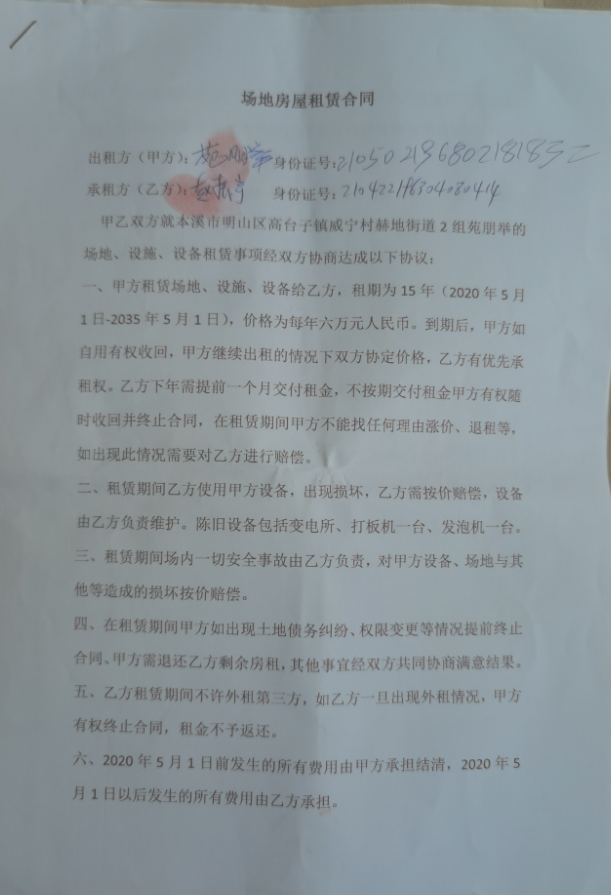 场地房屋租赁合同
出租方（甲方）：苑朋举 身份证号：210502196802181852
承租方（乙方）： 身份证号：210422196304080414
甲乙双方就本溪市明山区高台子镇威宁村赫地街道 2 组苑朋举的
场地、设施、设备租赁事项经双方协商达成以下协议：
一、甲方租赁场地、设施、设备给乙方，租期为 15 年（2020 年 5 月
1 日-2035 年 5 月 1 日），价格为每年六万元人民币。到期后，甲方如
自用有权收回，甲方继续出租的情况下双方协定价格，乙方有优先承
租权。乙方下年需提前一个月交付租金，不按期交付租金甲方有权随
时收回并终止合同，在租赁期间甲方不能找任何理由涨价、退租等，
如出现此情况需要对乙方进行赔偿。
二、租赁期间乙方使用甲方设备，出现损坏，乙方需按价赔偿，设备
由乙方负责维护。陈旧设备包括变电所、打板机一台、发泡机一台。
三、租赁期间场内一切安全事故由乙方负责，对甲方设备、场地与其
他等造成的损坏按价赔偿。
四、在租赁期间甲方如出现土地债务纠纷、权限变更等情况提前终止
合同、甲方需退还乙方剩余房租，其他事宜经双方共同协商满意结果。
五、乙方租赁期间不许外租第三方，如乙方一旦出现外租情况，甲方
有权终止合同，租金不予返还。
六、2020 年 5 月 1 日前发生的所有费用由甲方承担结清，2020 年 5
月 1 日以后发生的所有费用由乙方承担。